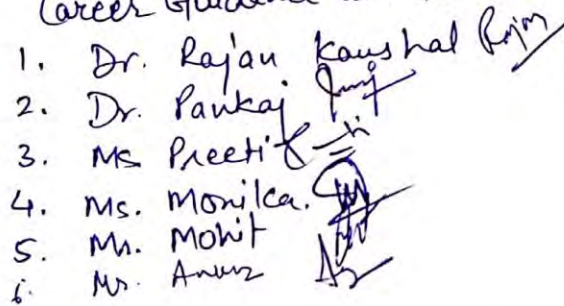 Career Guidance
1. Dr. Rajan Kaushal Rajan
2. Dr. Pankaj
3. Ms Preeti
4. Ms. Monika.
5. Mr. Mohit
6. Mr.